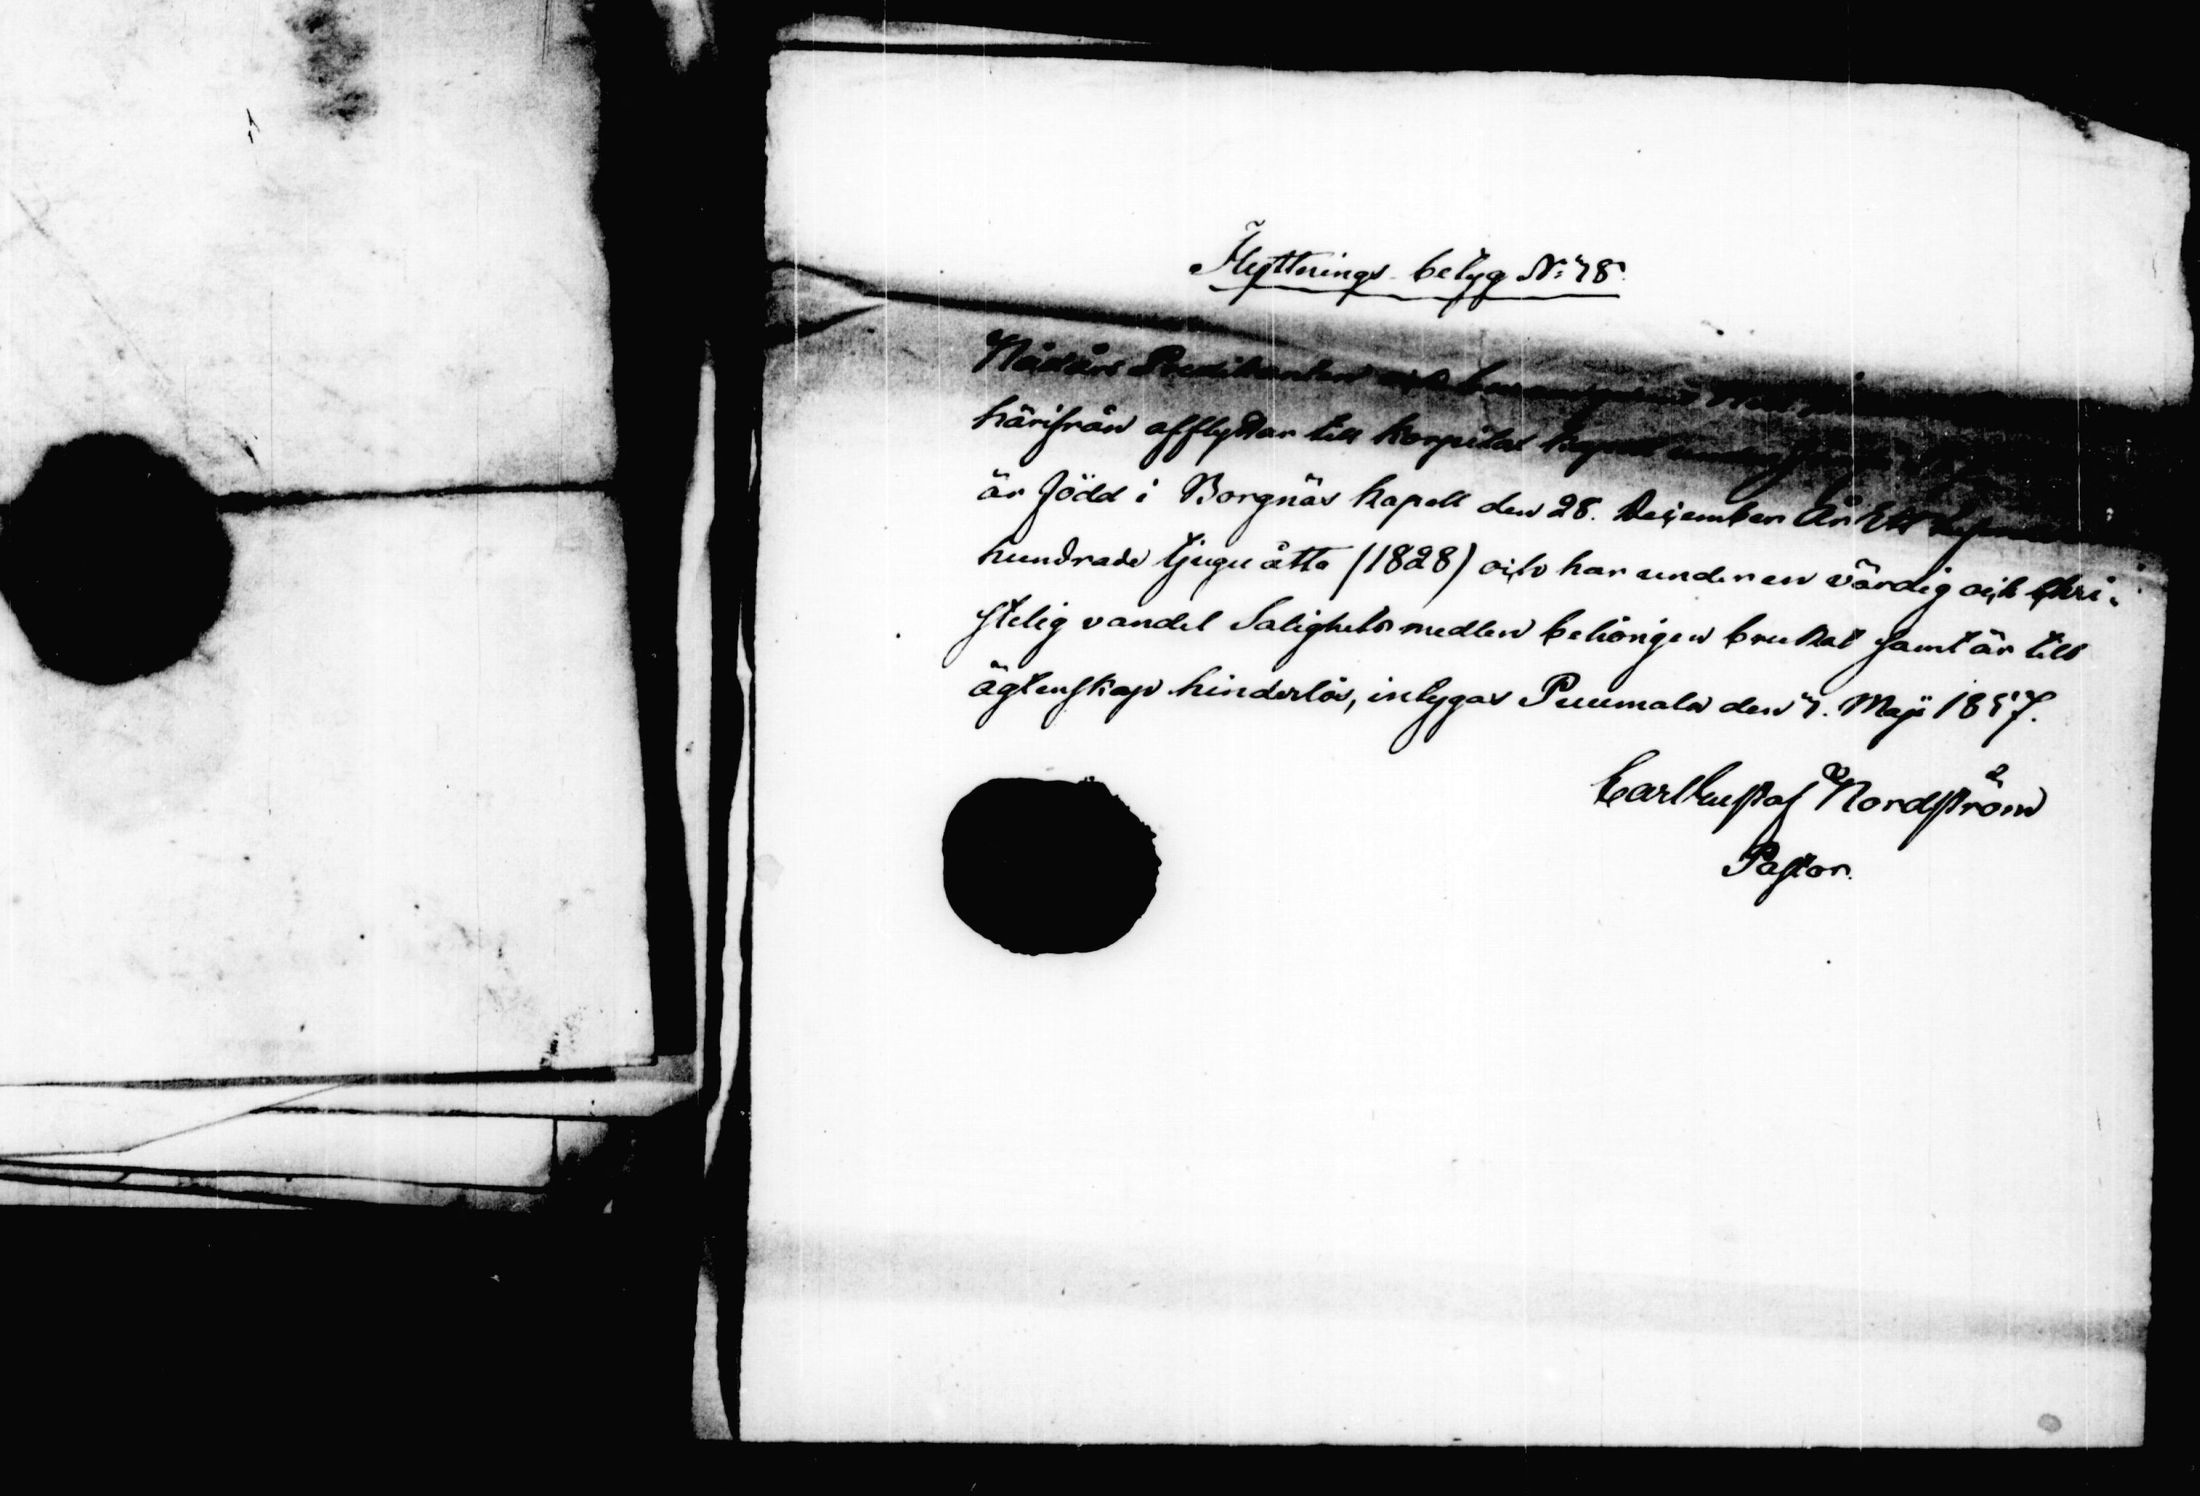 Flyttnings-betyg No: 78.
Nådårs Predikanten och
härifrån afflyttar till Korpilax kapell under
är född i Borgnäs kapell den 28. December År Ett tusen
hundrade tjuguåtta (1828) och har under en värdig och Chri-
stelig vandel Salighets medlen behörigen brukat samt är till
ägtenskap hinderlös, intygas Puumala den 7. Maji 1857.
Carl Gustaf Nordström
Pastor.